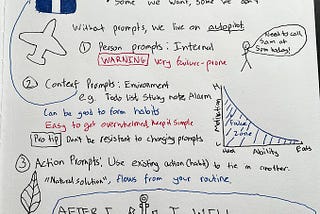 Some we want, some we don't
Without prompts, we live on autopilot
① Person prompts: Internal
WARNING very failure-prone
Need to call
Sam at
5pm today!
② Context Prompts: Environment
e.g. Todo list Study note Alarm
Can be good to form habits
Easy to get overwhelmed, keep it simple
Pro tip Don't be resistant to changing prompts
H
Motivation
L
Failure
Zone
Hard Ability Easy
③ Action Prompts: Use existing action (habit) to tie in another.
"Natural solution", flows from your routine.
AFTER I I WILL